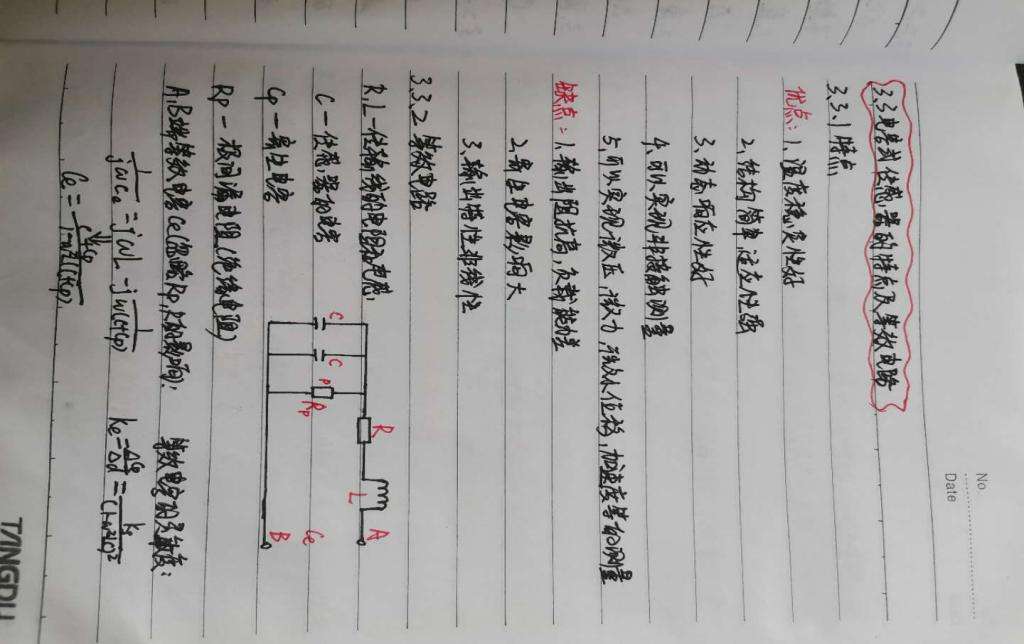 No.
Date
3.3电容式传感器的特点及等效电路
3.3.1特点
优点：1.温度稳定性好
2.结构简单,适应性强
3.动态响应性好
4.可以实现非接触测量
5.可以实现微压,微力,微小位移,加速度等的测量
缺点：1.输出阻抗高,负载能力差
2.寄生电容影响大
3.输出特性非线性
3.3.2等效电路
R.L—传输线的电阻及电感;
C—传感器的电容
Cp—寄生电容
Rp—极间漏电阻(绝缘电阻)
C
C
P
Rp
R
L
A
Ce
B
A,B端等效电容Ce(忽略Rp,R的影响): 等效电容的灵敏度:
1/jωCe=jωL-j 1/ω(C+Cp)
Ke=ΔCe/Δd=
Ce=
TANGDU